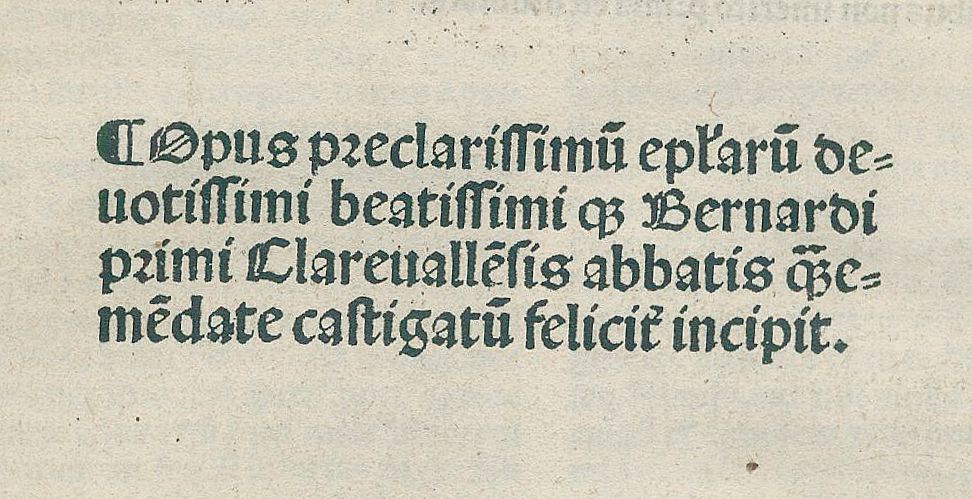 ¶ Opus preclarissimū epl̃arū de⸗
uotissimi beatissimi qꝫ Bernardi
primi Clareuallēsis abbatis qꝫ̃e⸗
mēdate castigatū feliciť incipit.